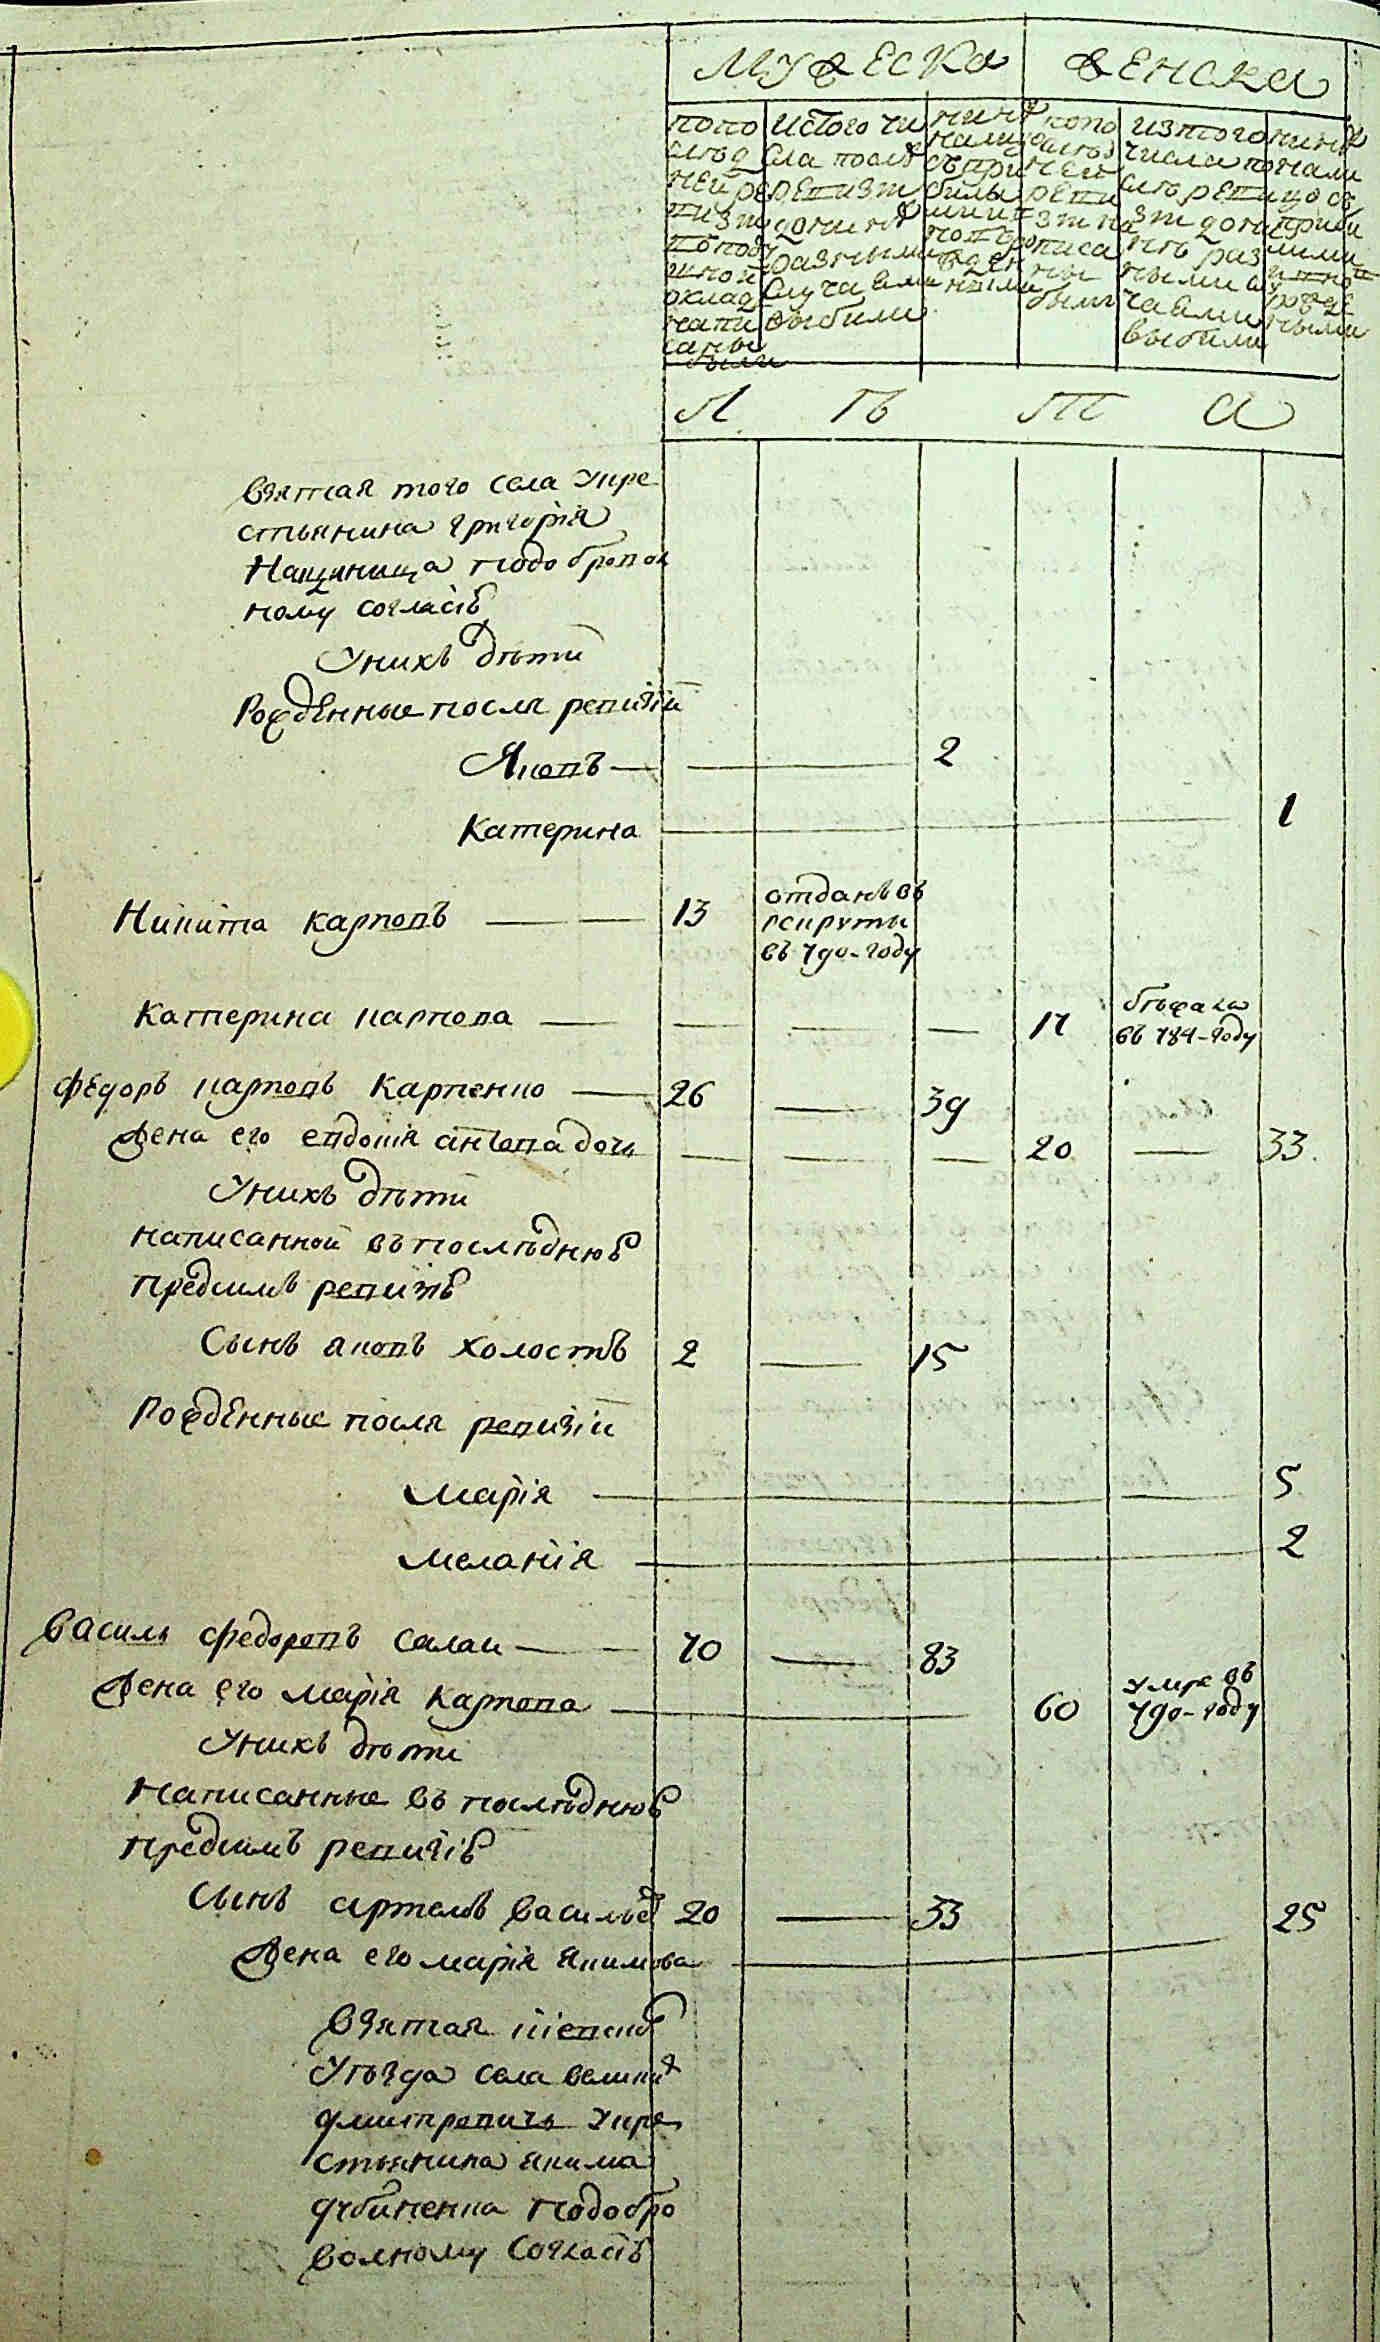 Мужеска Женска
по по
след
ней ре
визи
по поду
шной
оклад
напи
саны
были
ис того чи
сла после
ревизи
до ныне
разными
случаями
выбыли
ныне
налицо
съ при
былы
ми и
новоро
жден
ными
по по
след
ней
реви
зи на
писа
ны
были
из того
числа по
сле реви
зи до ны
не раз
ными слу
чаями
выбыли
ныне
нали
цо съ
прибы
лыми
и ново
рожде
ными
Л ѣ т а
взятая того села у кре
стьянина григорія
по добропол
ному согласію
У нихъ дѣти
Рожденные после ревизіи
Яковъ 2
Катерина 1
Никита карповъ 13 отданъ въ
рекруты
въ 790-году
Катерина карпова 17 бѣжала
въ 784-году
Федоръ карповъ Карпенко 26 39
Жена его евдокія дочь 20 33
У нихъ дѣти
написанной въ последнюю
пред симъ ревизію
Сынъ яковъ холостъ 2 15
Рожденные после ревизіи
Марія 5
Меланія 2
Василь федоровъ Салаи 70 83
Жена его Марія Карпова 60 умре въ
790-году
У нихъ дѣти
Написанные въ последнюю
пред симъ ревизію
Сынъ артемъ васильев 20 33 25
Жена его марія якимова
взятая кіевской
уѣзда села великих
дмитровичь у кре
стьянина якима
дубиненка по добро
волному согласію